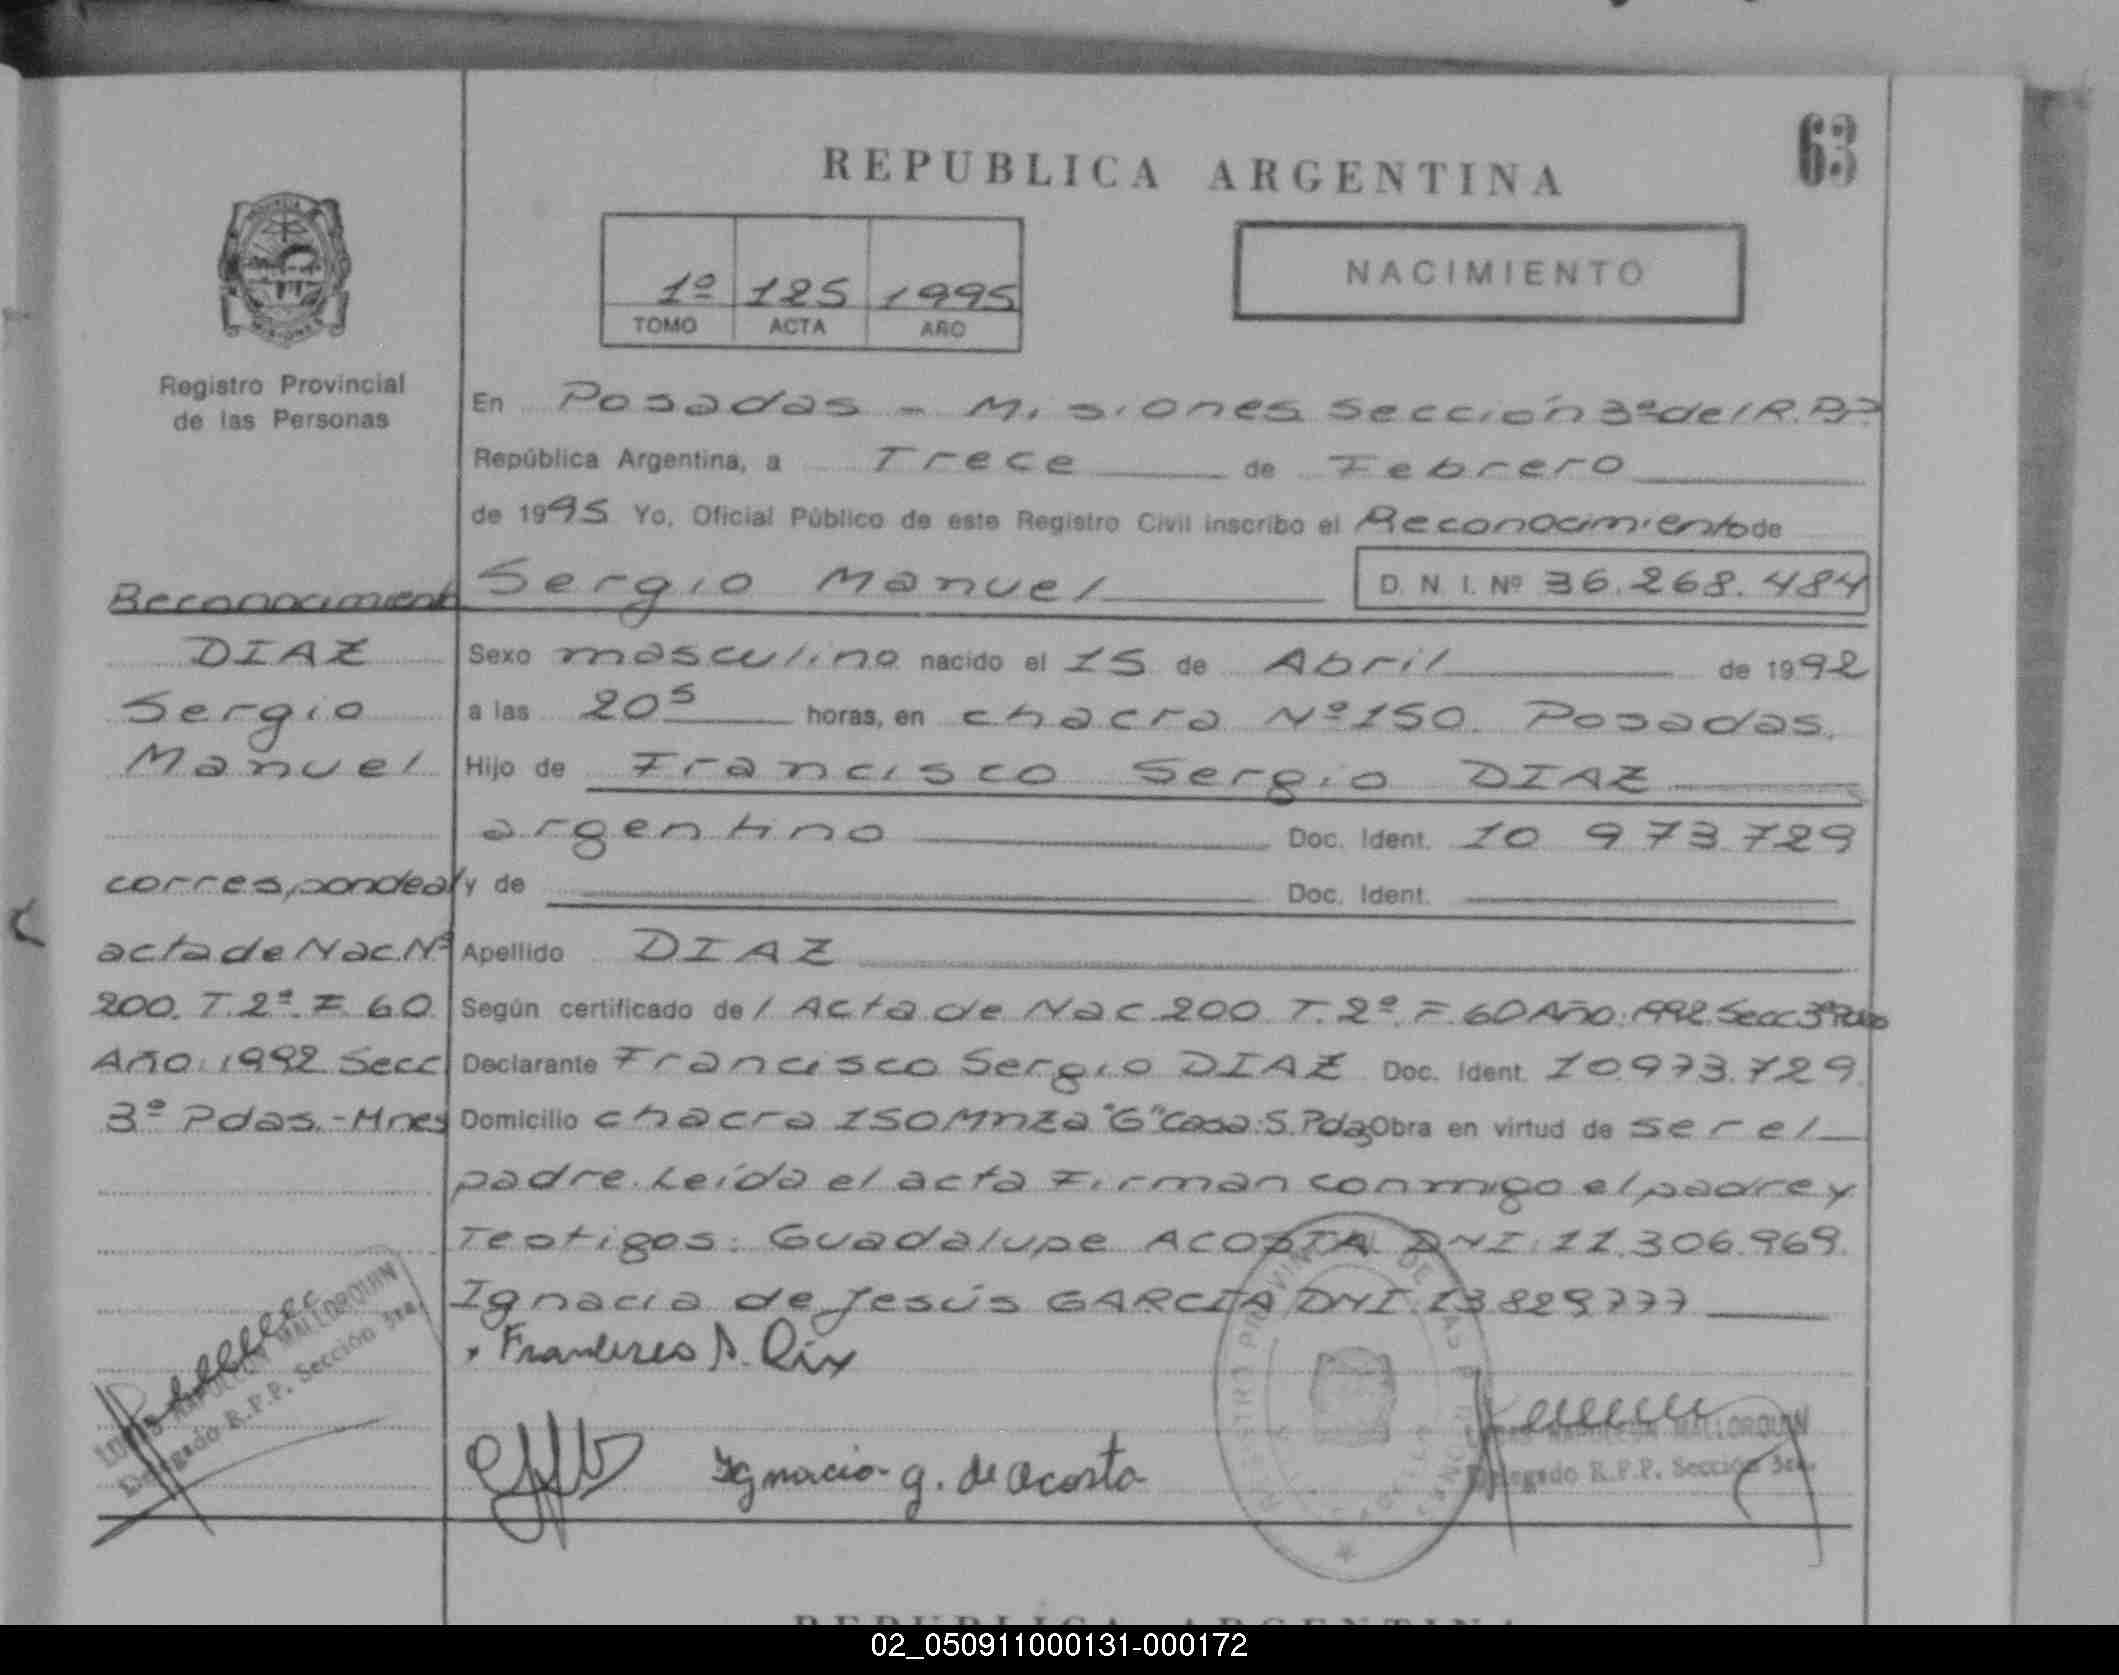 63
REPUBLICA ARGENTINA
1º 125 1995
TOMO ACTA AÑO
NACIMIENTO
Registro Provincial
de las Personas
En Posadas - Misiones Sección 3ª del R.P.P.
República Argentina, a Trece de Febrero
de 1995 Yo, Oficial Público de este Registro Civil inscribo el Reconocimiento de
Sergio Manuel D. N. I. Nº 36.268.484
Sexo masculino nacido el 15 de Abril de 1992
a las 20 5 horas, en chacra Nº 150. Posadas.
Hijo de Francisco Sergio DIAZ
argentino Doc. Ident. 10 973.729
y de Doc. Ident.
Apellido DIAZ
Según certificado del Acta de Nac 200 T. 2º. F. 60 Año: 1992 Secc 3ª Pdas
Declarante Francisco Sergio DIAZ Doc. Ident. 10.973.729.
Domicilio chacra 150 Mnza "G" Casa: 5. Pdas Obra en virtud de ser el
padre. Leída el acta Firman conmigo el padre y
Testigos: Guadalupe ACOSTA DNI: 11.306.969.
Ignacia de Jesús GARCIA DNI. 13 829777
Reconocimient
DIAZ
Sergio
Manuel
corresponde al
acta de Nac. Nº
200. T. 2º. F. 60.
Año: 1992 Secc
3ª Pdas.-Mnes
NAPOLEON MALLORQUIN
Delegado R.P.P. Sección 3ra.
Ignacia g. de Acosta
NAPOLEON MALLORQUIN
Delegado R.P.P. Sección 3ra.
REPUBLICA ARGENTINA
02_050911000131-000172